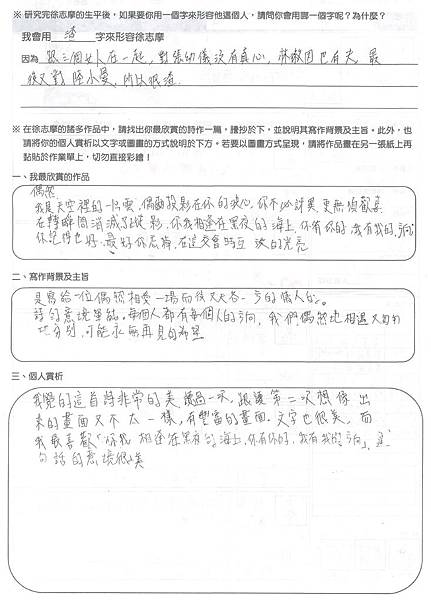 ※ 研究完徐志摩的生平後，如果要你用一個字來形容他這個人，請問你會用哪一個字呢？為什麼？
我會用 渣 字來形容徐志摩
因為 跟三個女人在一起，對張幼儀沒有真心，林徽因已有夫，最
後又對陸小曼，所以很渣
※ 在徐志摩的諸多作品中，請找出你最欣賞的詩作一篇，謄抄於下，並說明其寫作背景及主旨。此外，也
請將你的個人賞析以文字或圖畫的方式說明於下方。若要以圖畫方式呈現，請將作品畫在另一張紙上再
黏貼於作業單上，切勿直接彩繪！
一、我欣賞的作品
偶然
我是天空裡的一片雲，偶爾投影在你的波心，你不必訝異，更無須歡喜
在轉瞬間消滅了蹤影，你我相逢在黑夜的海上，你有你的，我有我的，方向
你記得也好，最好你忘掉，在這交會時互 的光亮
二、寫作背景及主旨
是寫給一位偶然相愛一場而後又天各一方的情人的。
詩的意境 每個人都有每個人的方向，我們偶然地相遇又匆匆
地分別，可能永無再見的希望
三、個人賞析
我覺的這首詩非常的美，讀過一次，跟讀第二次想像出
來的畫面又不太一樣，有豐富的畫面，文字也很美，而
我最喜歡「你我相逢在黑夜的海上，你有你的，我有我的方向」，這
句話的意境很美